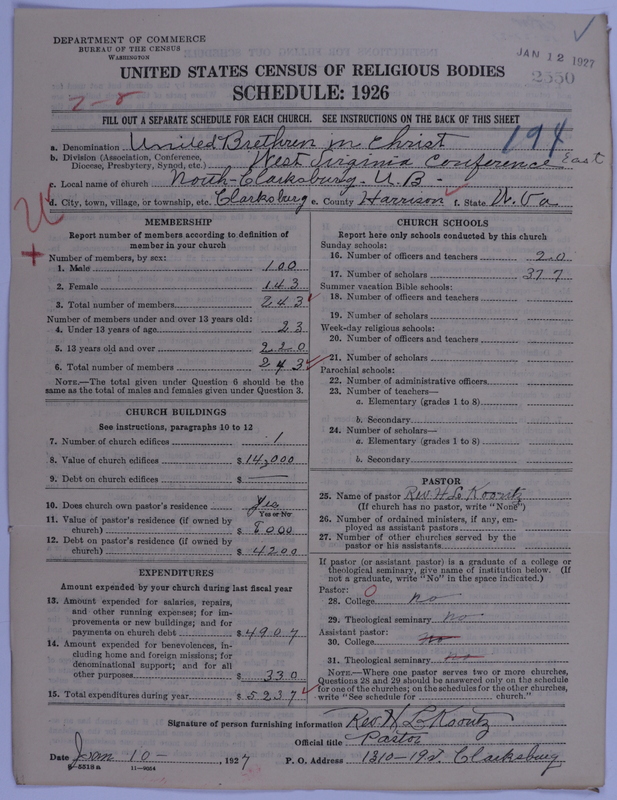 DEPARTMENT OF COMMERCE
BUREAU OF THE CENSUS
WASHINGTON
JAN 12 1927
2350
UNITED STATES CENSUS OF RELIGIOUS BODIES
SCHEDULE: 1926
2-8
FILL OUT A SEPARATE SCHEDULE FOR EACH CHURCH. SEE INSTRUCTIONS ON THE BACK OF THIS SHEET
194
a. Denomination United Brethren in Christ
b. Division (Association, Conference, Diocese, Presbytery, Synod, etc.) West Virginia Conference East
c. Local name of church North-Clarksburg-U.B-
d. City, town, village, or township, etc. Clarksburg e. County Harrison f. State W. Va
MEMBERSHIP
Report number of members according to definition of
member in your church
Number of members, by sex:
1. Male 100
2. Female 143
3. Total number of members 243
Number of members under and over 13 years old:
4. Under 13 years of age 23
5. 13 years old and over 220
6. Total number of members 243
NOTE.—The total given under Question 6 should be the
same as the total of males and females given under Question 3.
CHURCH BUILDINGS
See instructions, paragraphs 10 to 12
7. Number of church edifices 1
8. Value of church edifices $ 14,000
9. Debt on church edifices $ —
10. Does church own pastor's residence Yes
Yes or No
11. Value of pastor's residence (if owned by
church) $ 8000
12. Debt on pastor's residence (if owned by
church) $ 4200
EXPENDITURES
Amount expended by your church during last fiscal year
13. Amount expended for salaries, repairs,
and other running expenses; for im-
provements or new buildings; and for
payments on church debt $ 4907
14. Amount expended for benevolences, in-
cluding home and foreign missions; for
denominational support; and for all
other purposes $ 330
15. Total expenditures during year $ 5237
CHURCH SCHOOLS
Report here only schools conducted by this church
Sunday schools:
16. Number of officers and teachers 20
17. Number of scholars 377
Summer vacation Bible schools:
18. Number of officers and teachers
19. Number of scholars
Week-day religious schools:
20. Number of officers and teachers
21. Number of scholars
Parochial schools:
22. Number of administrative officers
23. Number of teachers—
a. Elementary (grades 1 to 8)
b. Secondary
24. Number of scholars—
a. Elementary (grades 1 to 8)
b. Secondary
PASTOR
25. Name of pastor Rev. H. L. Koontz
(If church has no pastor, write "None")
26. Number of ordained ministers, if any, em-
ployed as assistant pastors
27. Number of other churches served by the
pastor or his assistants
If pastor (or assistant pastor) is a graduate of a college or
theological seminary, give name of institution below. (If
not a graduate, write "No" in the space indicated.)
Pastor: 0
28. College no
29. Theological seminary no
Assistant pastor:
30. College no
31. Theological seminary no
NOTE.—Where one pastor serves two or more churches,
Questions 28 and 29 should be answered only on the schedule
for one of the churches; on the schedules for the other churches,
write "See schedule for church."
Signature of person furnishing information Rev. H L Koontz
Official title Pastor
Date Jan 10-, 1927 P. O. Address 1310-19 St. Clarksburg
8-5518 a 11-9064